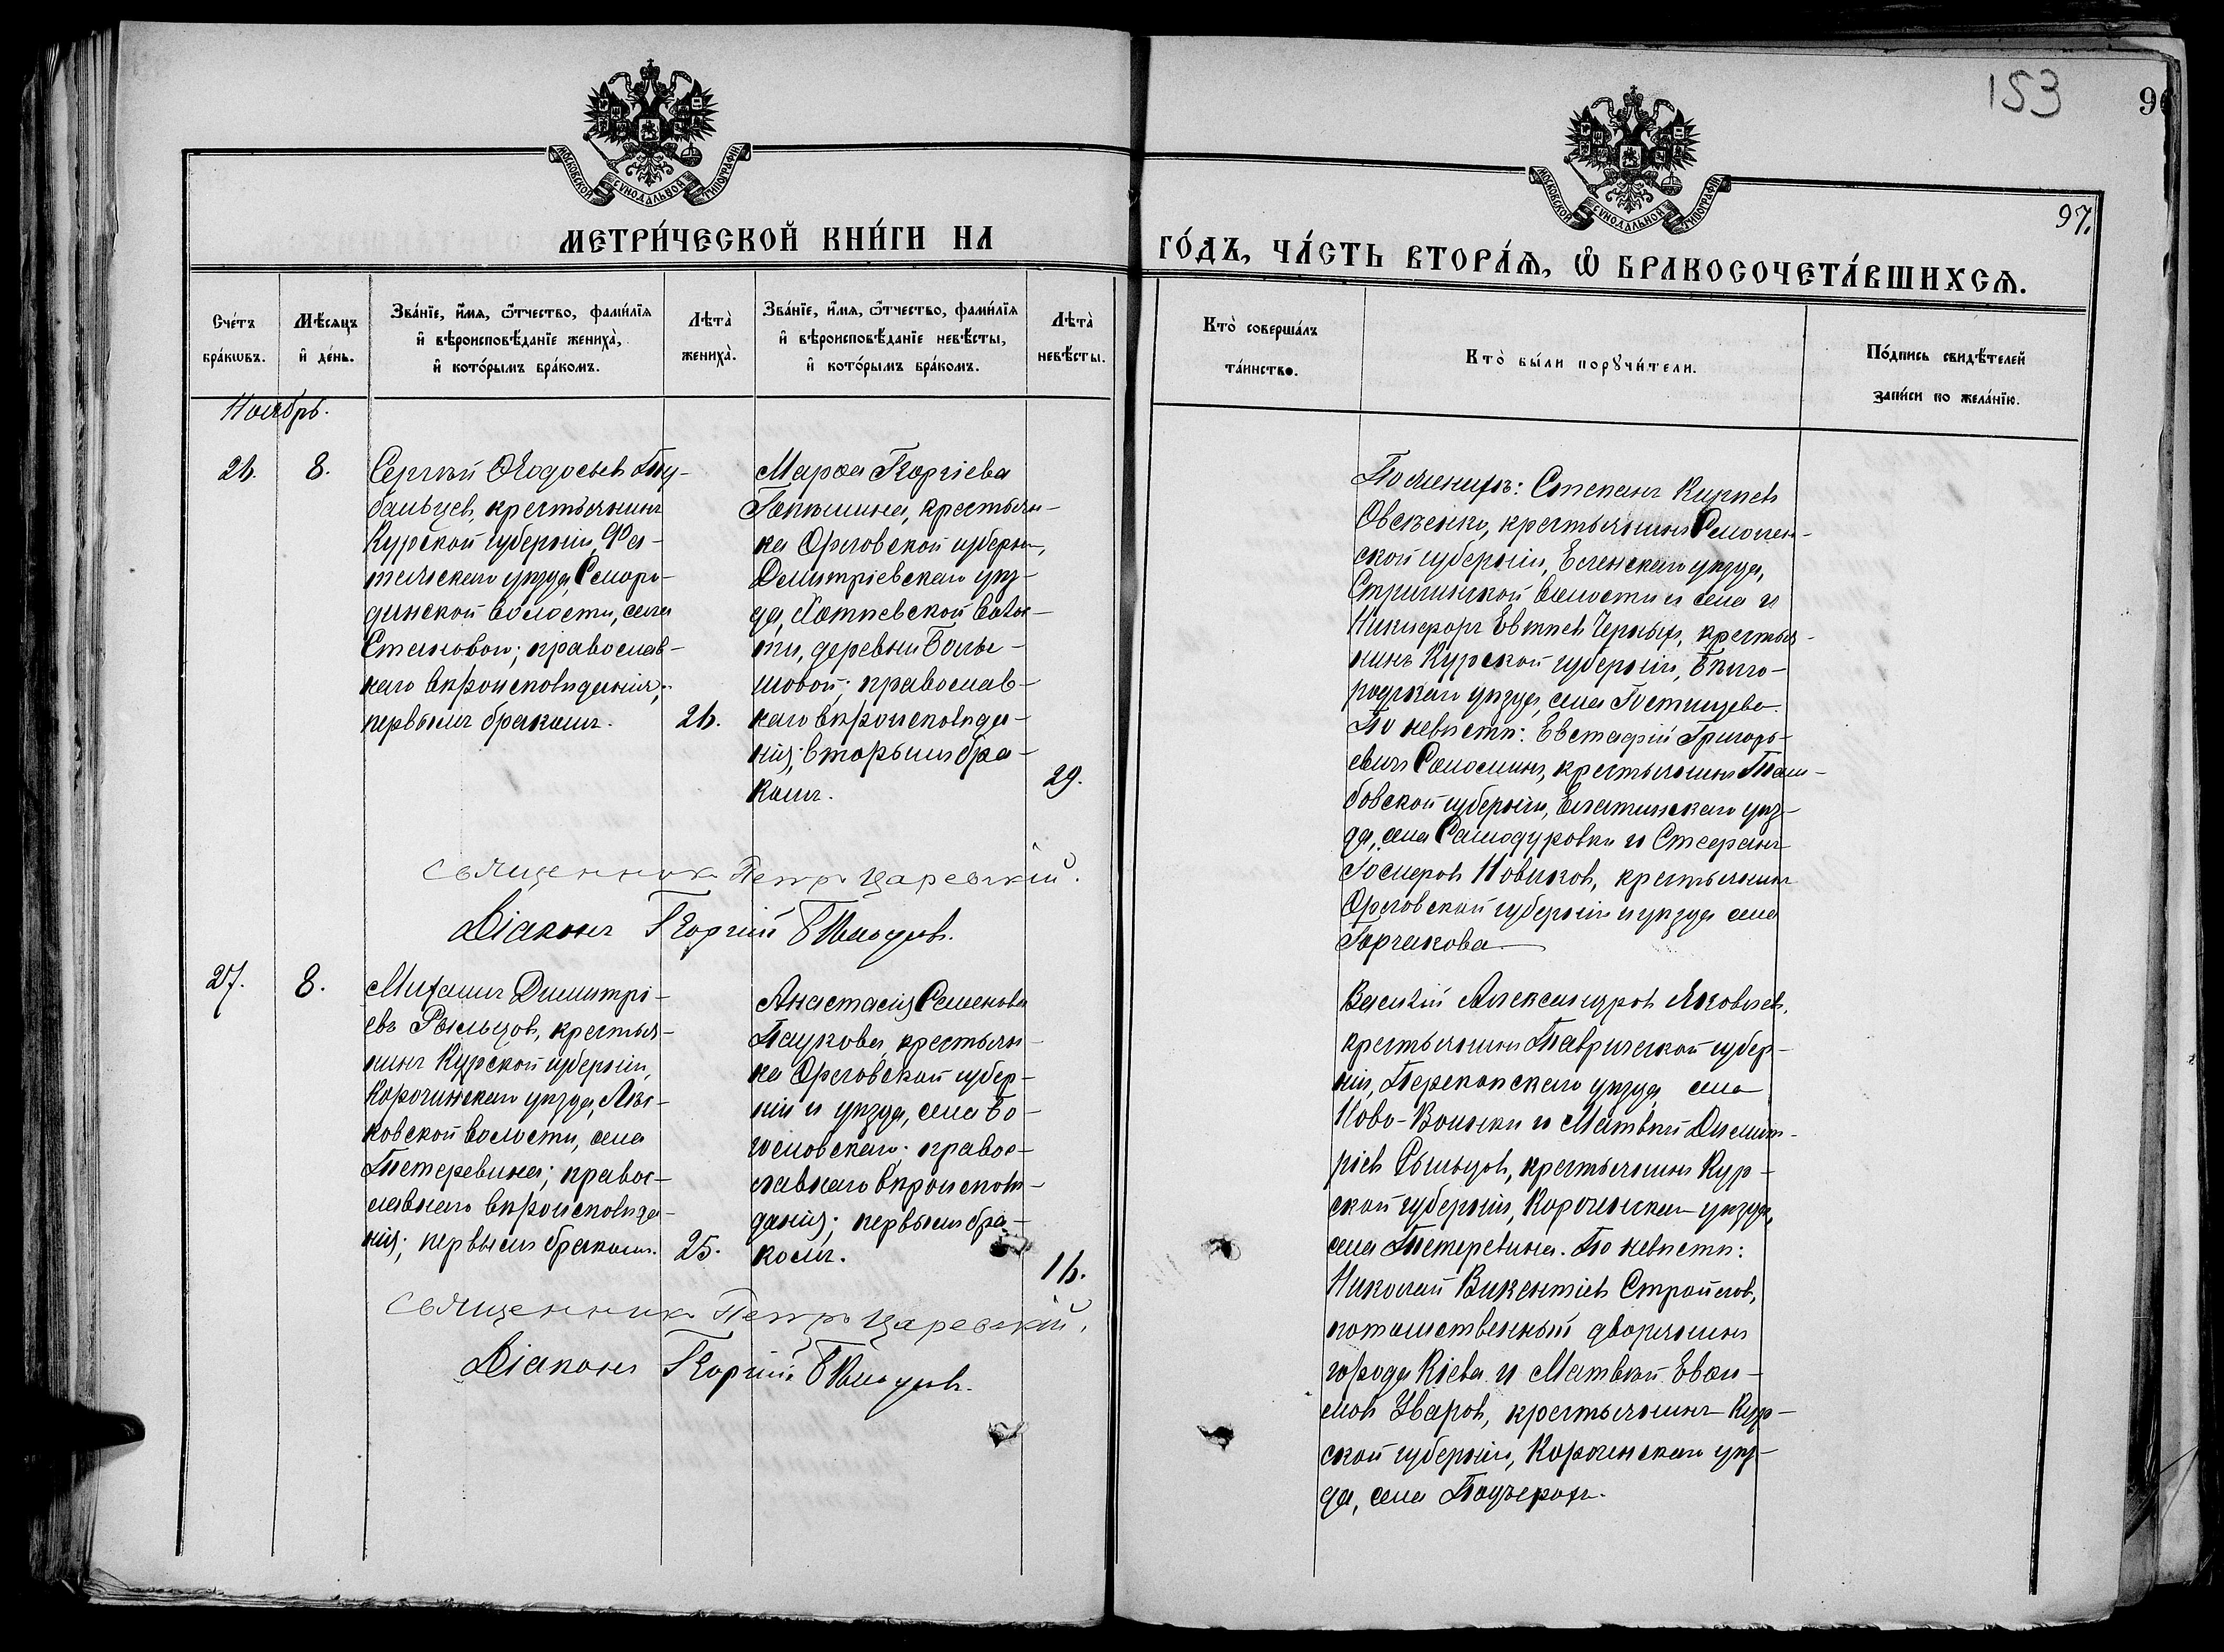 153
97.
МОСКОВСКОЙ СѴНОДАЛЬНОЙ ТИПОГРАФІИ
МОСКОВСКОЙ СѴНОДАЛЬНОЙ ТИПОГРАФІИ
МЕТРИ́ЧЕСКОЙ КНИ́ГИ НА
ГО́ДЪ, ЧА́СТЬ ВТОРА́Я, Ѽ БРАКОСОЧЕТА́ВШИХСЯ.
Сче́тъ бра́кѡвъ.
Мѣ́сяцъ и де́нь.
Зва́нїе, и́мя, ѻ́тчество, фами́лїя
и вѣроисповѣ́данїе жениха̀,
и кото́рымъ бра́комъ.
Лѣта̀ жениха̀.
Зва́нїе, и́мя, ѻ́тчество, фами́лїя
и вѣроисповѣ́данїе невѣ́сты,
и кото́рымъ бра́комъ.
Лѣта̀ невѣ́сты.
Кто̀ соверша́лъ
та́инство.
Кто̀ бы́ли порꙋчи́тели.
По́дпись свидѣ́телей
запи́си по жела́нїю.
Ноябрь.
26.
8.
Сергѣй Ѳеодосьевъ Ту-
бальцевъ, крестьянинъ
Курской губерніи, Фа-
тежскаго уѣзда, Сморо-
динской волости, села
Становой; православ-
наго вѣроисповѣданія;
первымъ бракомъ.
26.
Марѳа Георгіева
крестьян-
ка Орловской губерніи,
Димитріевскаго уѣз-
да, волос-
ти, деревни Больш-
шовой; православ-
наго вѣроисповѣда-
нія; вторымъ бра-
комъ.
29.
Священникъ Петръ Царевскій.
Діаконъ Георгій
По женихѣ: Степанъ Карпевъ
Овсѣенко, крестьянинъ Смолен-
ской губерніи, Ельнскаго уѣзда,
волости и села и
Никифоръ Евтиевъ Черныхъ, крестья-
нинъ Курской губерніи, Бѣлго-
родскаго уѣзда, села Гостищево.
По невѣстѣ: Евстафій Григорь-
евичъ Самолинъ, крестьянинъ Там-
бовской губерніи, Елатомскаго уѣз-
да, села Самодуровки и Стефанъ
Новиковъ, крестьянинъ
Орловской губерніи и уѣзда села
Горчакова
27.
8.
Михаилъ Димитрі-
евъ Рыльцовъ, крестья-
нинъ Курской губерніи,
Корочанскаго уѣзда,
ковской волости, села
Тетеревина; правос-
лавнаго вѣроисповѣда-
нія; первымъ бракомъ.
25.
Анастасія Семенова
Паукова, крестьян-
ка Орловской губер-
ніи и уѣзда, села Бо-
гословскаго; правос-
лавнаго вѣроисповѣ-
данія; первымъ бра-
комъ.
16.
Священникъ Петръ Царевскій.
Діаконъ Георгій
Василій Александровъ Яковлевъ,
крестьянинъ Таврической губер-
ніи, Перекопскаго уѣзда, села
Ново-Воинки и Матвѣй Димит-
ріевъ Рыльцовъ, крестьянинъ Кур-
ской губерніи, Корочанскаго уѣзда,
села Тетеревина. По невѣстѣ:
Николай Викентіевъ
потомственный дворянинъ
города Кіева и Матвѣй Евки-
мовъ Уваровъ, крестьянинъ Кур-
ской губерніи, Корочанскаго уѣз-
да, села Подъерокъ.